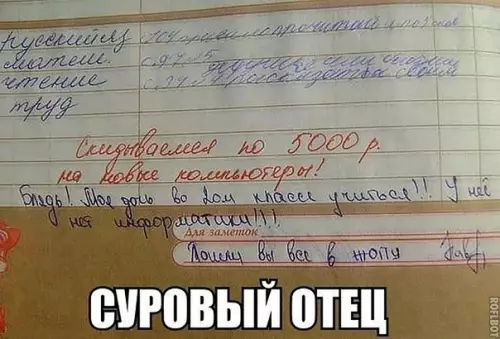 русский яз
матем.
чтение
труд
Скидываемся по 5000 р.
на новые компьютеры!
Блядь! Моя дочь во 2ом классе учиться!! У неё
нет информатики!!!
Для заметок
Пошли вы все в жопу
СУРОВЫЙ ОТЕЦ
ROFLBOT